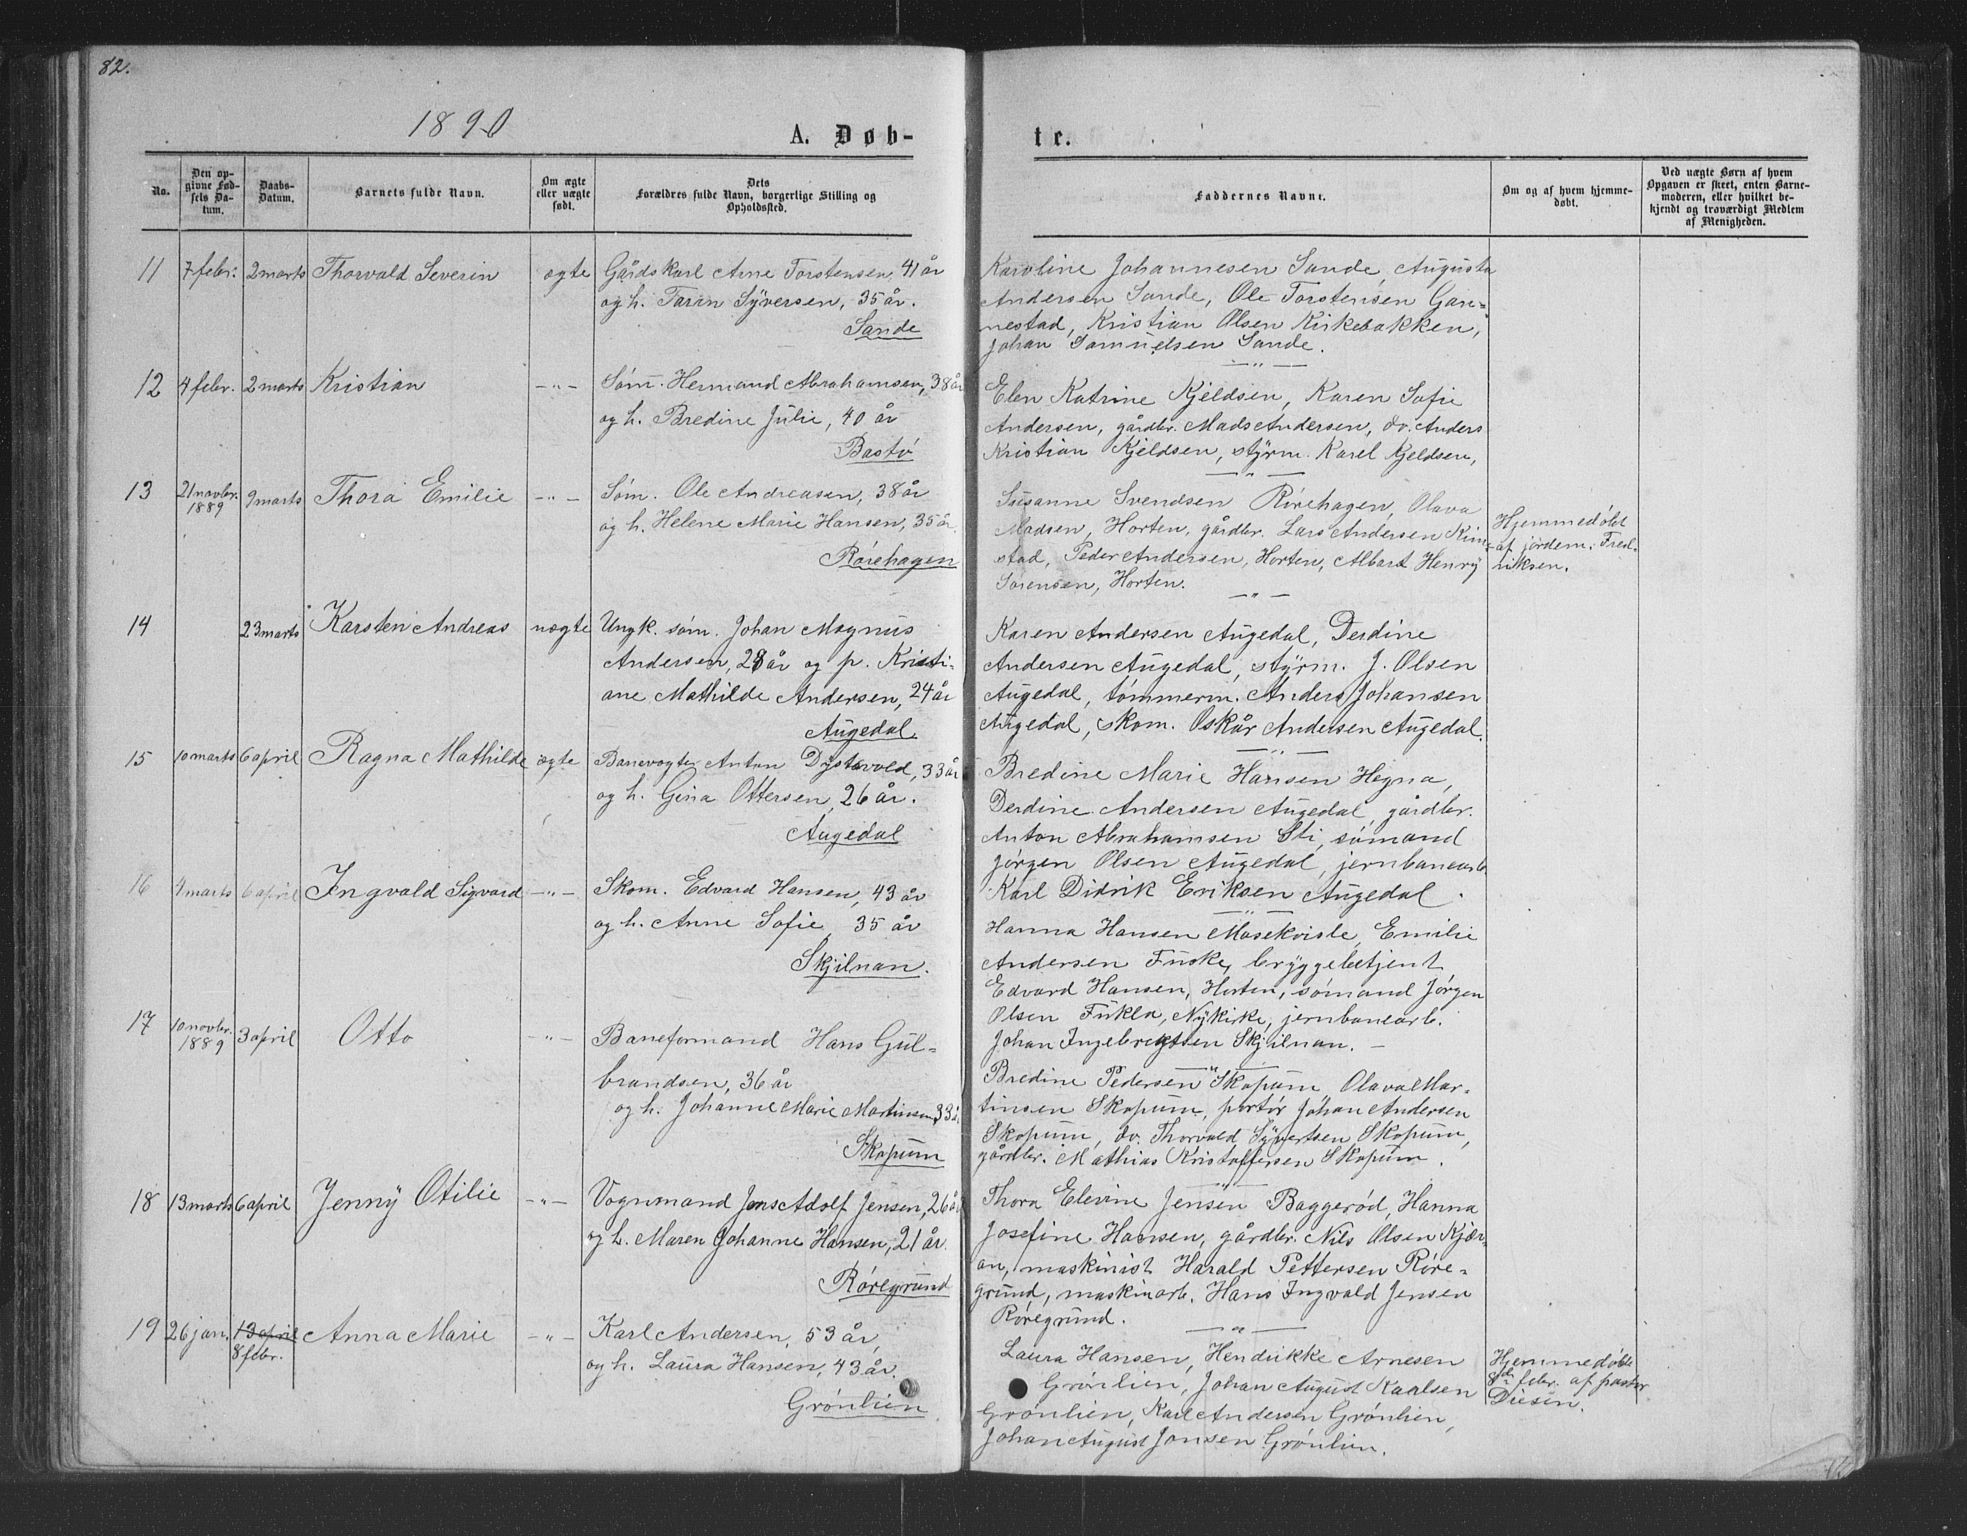 82.
1890
A. Døb-
te.
No.
Den op-
givne Fød-
sels Da-
tum.
Daabs-
Datum.
Barnets fulde Navn.
Om ægte
eller uægte
født.
Dets
Forældres fulde Navn, borgerlige Stilling og
Opholdssted.
Faddernes Navne.
Om og af hvem hjemme-
døbt.
Ved uægte Børn af hvem
Opgaven er skeet, enten Barne-
moderen, eller hvilket be-
kjendt og troværdigt Medlem
af Menigheden.
11 7 febr. 2 marts Thorvald Severin ægte Gårdskarl Arne Torstensen, 41 år
og h. Taran Syversen, 35 år.
Sande
Karoline Johannesen Sande, Augusta
Andersen Sande, Ole Torstensen Gan-
nestad, Kristian Olsen Kirkebakken,
Johan Samuelsen Sande.
12 4 febr. 2 marts Kristian -„- Søm. Hermand Abrahamsen, 38 år
og h. Bredine Julie, 40 år
Bastø
Elen Katrine Kjeldsen, Karen Sofie
Andersen, gårdbr. Mads Andersen, do. Anders
Kristian Kjeldsen, styrm. Karel Kjeldsen,
13 21 novbr. 1889 9 marts Thora Emilie -„- Søm. Ole Andreasen, 38 år
og h. Helene Marie Hansen, 35 år.
Rørehagen
Susanne Svendsen Rørehagen, Olava
Madsen, Horten, gårdbr. Lars Andersen Kim-
stad, Peder Andersen, Horten, Albert Henry
Sørensen, Horten.
Hjemmedøbt
af jordem. Fred-
riksen.
14 23 marts Karsten Andreas uægte Ungk. søm. Johan Magnus
Andersen, 28 år og p. Kristi-
ane Mathilde Andersen, 24 år
Augedal.
Karen Andersen Augedal, Derdine
Andersen Augedal, styrm. J. Olsen
Augedal, tømmerm. Anders Johansen
Augedal, skom. Oskar Andersen Augedal.
15 10 marts 6 april Ragna Mathilde ægte Banevogter Anton Dystvold, 33 år
og h. Gina Ottersen, 26 år.
Augedal
Bredine Marie Hansen Hegna,
Derdine Andersen Augedal, gårdbr.
Anton Abrahamsen Sti, sømand
Jørgen Olsen Augedal, jernbanearb.
Karl Didrik Eriksen Augedal.
16 4 marts 6 april Ingvald Sigvard -„- Skom. Edvard Hansen, 43 år
og h. Anne Sofie 35 år
Skjilnan.
Hanna Hansen Mosekviste, Emilie
Andersen Fuske, bryggebetjent
Edvard Hansen, Horten, sømand Jørgen
Olsen Nykirke, jernbanearb.
Johan Ingebregtsen Skjilnan.
17 10 novbr. 1889 3 april Otto -„- Baneformand Hans Gul-
brandsen, 36 år
og h. Johanne Marie Martinsen, 33 å.
Skopum
Bredine Pedersen Skopum, Olava Mar-
tinsen Skopum, portør Johan Andersen
Skopum, do. Thorvald Syvertsen Skopum,
gårdbr. Mathias Kristoffersen Skopum.
18 13 marts 6 april Jenny Otilie -„- Vognmand Jens Adolf Jensen, 26 år
og h. Maren Johanne Hansen, 21 år.
Røregrund
Thora Elevine Jensen Baggerød, Hanna
Josefine Hansen, gårdbr. Nils Olsen Kjær-
an, maskinist Harald Pettersen Røre-
grund, maskinarb. Hans Ingvald Jensen
Røregrund.
19 26 jan. 13 april 8 febr. Anna Marie -„- Karl Andersen, 53 år,
og h. Laura Hansen, 43 år.
Grønlien
Laura Hansen, Hendrikke Arnesen
Grønlien, Johan August Karlsen
Grønlien, Karl Andersen Grønlien,
Johan August Jonsen Grønlien.
Hjemmedøbt
8de febr. af pastor
Diesen.